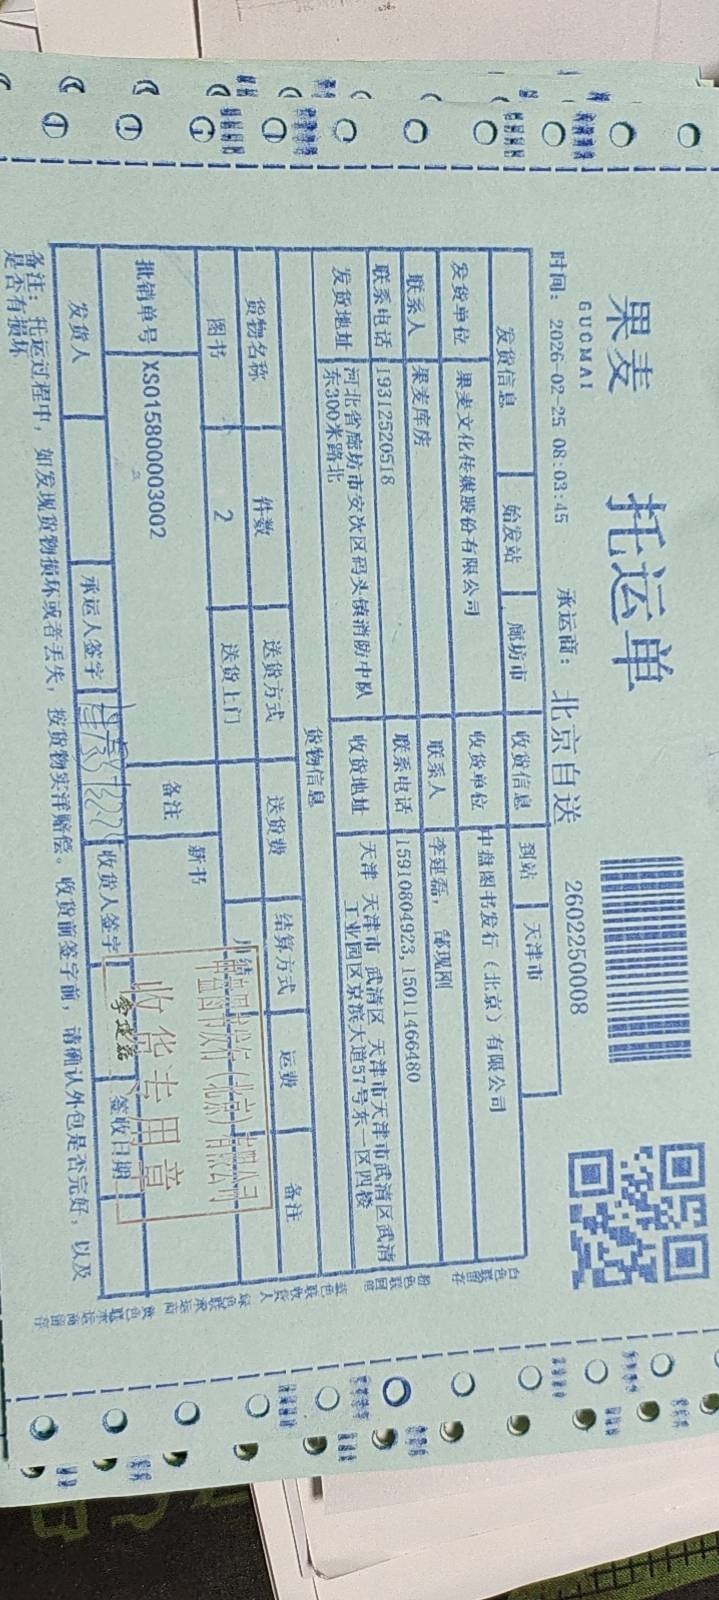 果麦
GUOMAI
托运单
2602250008
时间: 2026-02-25 08:03:45 承运商: 北京自送
发货信息 始发站 廊坊市 收货信息 到站 天津市
发货单位 果麦文化传媒股份有限公司 收货单位 中盘图书发行（北京）有限公司
联系人 果麦库房 联系人 李建磊, 郤现刚
联系电话 19312520518 联系电话 15910804923,15011466480
发货地址 河北省廊坊市安次区码头镇消防中队东300米路北 收货地址 天津 天津市 武清区 天津市天津市武清区武清工业园区京滨大道57号东一区四楼
货物信息
货物名称 件数 送货方式 送货费 结算方式 运费 备注
图书 2 送货上门 月结
批销单号 XS015800003002 备注 新书
发货人 承运人签字 收货人签字 李建磊 签收日期
中盘图书发行（北京）有限公司
收货专用章
备注: 托运过程中, 如发现货物损坏或者丢失, 按货物实洋赔偿。收货前签字前, 请确认外包是否完好, 以及
是否有损坏
白色联留存
粉色联回单
蓝色联收货人
绿色联承运商
黄色联承运商留存